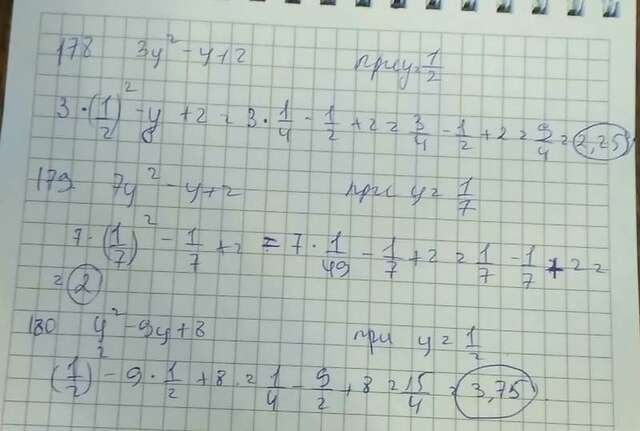 178 3y² - y + 2 при y = 1/2
3 · (1/2)² - y + 2 = 3 · 1/4 - 1/2 + 2 = 3/4 - 1/2 + 2 = 9/4 = 2,25
179 7y² - y + 2 при y = 1/7
7 · (1/7)² - 1/7 + 2 = 7 · 1/49 - 1/7 + 2 = 1/7 - 1/7 + 2 =
= 2
180 y² - 9y + 8 при y = 1/2
(1/2)² - 9 · 1/2 + 8 = 1/4 - 9/2 + 8 = 15/4 = 3,75